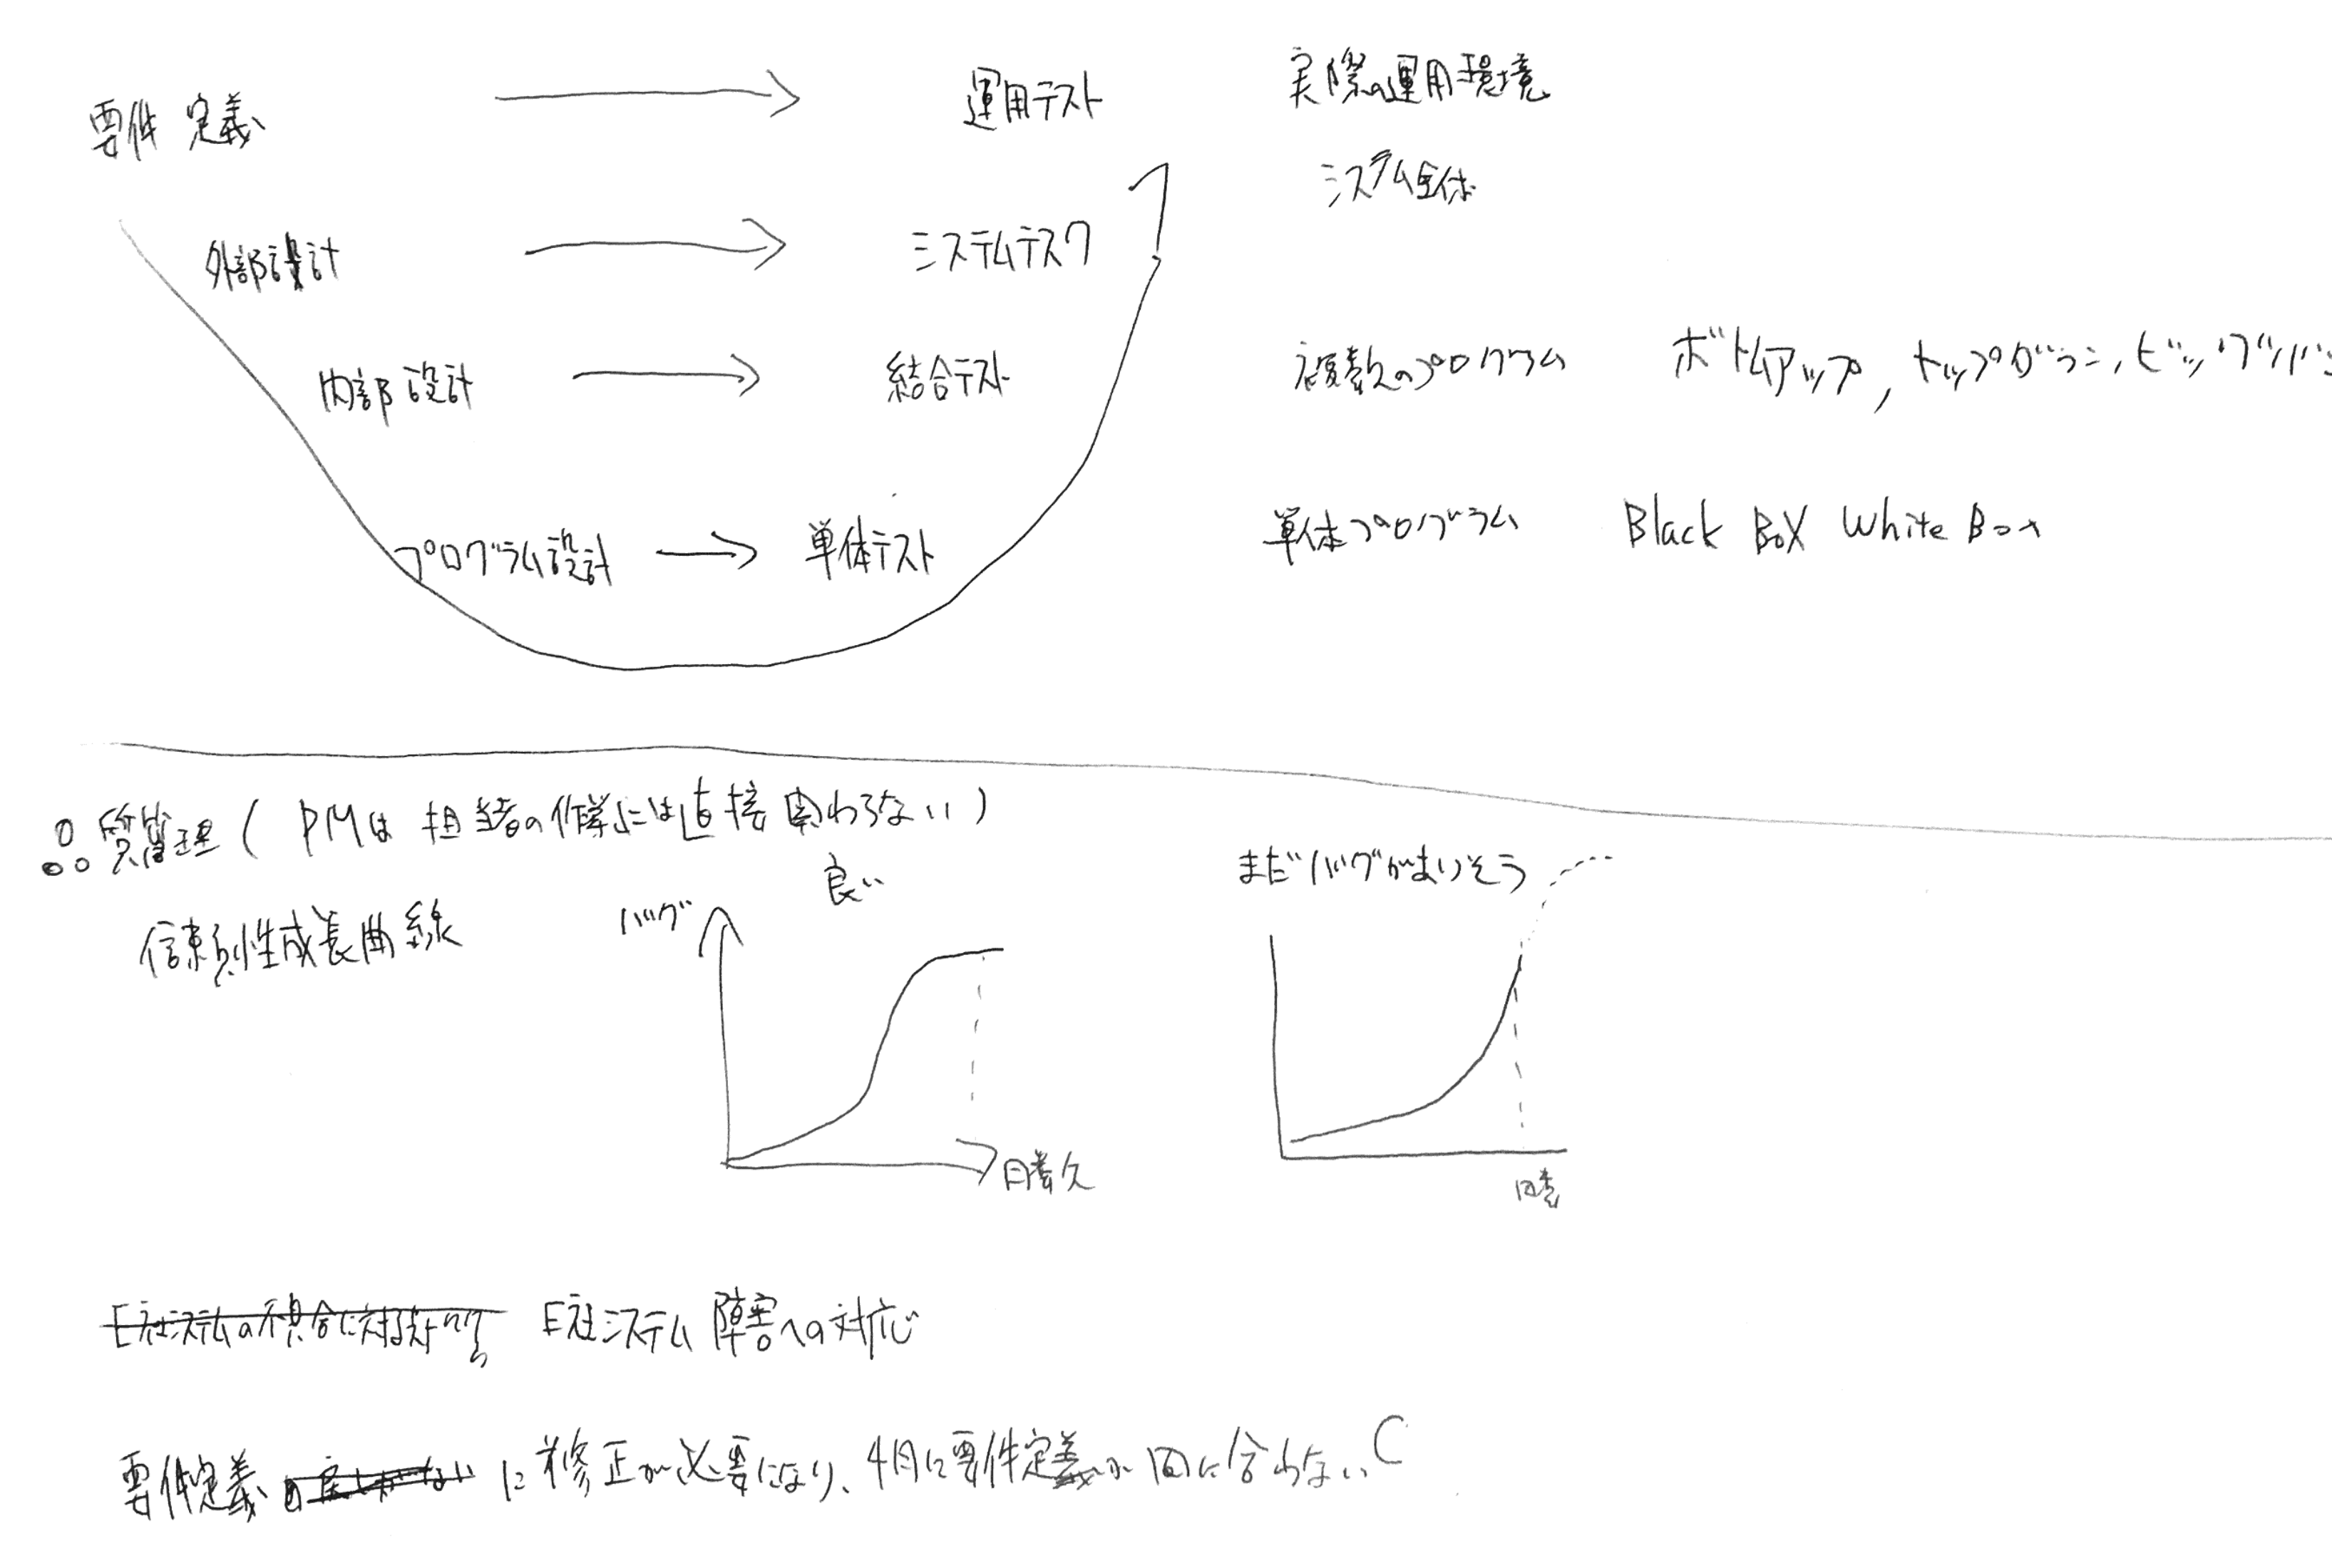 要件定義 運用テスト 実際の運用環境
外部設計 システムテスク システム全体
内部設計 結合テスト 複数のプログラム ボトムアップ,トップダウン,ビッグバン
プログラム設計 単体テスト 単体プログラム Black Box White Box
品質管理(PMは担当者の作業には直接関わらない)
信頼性成長曲線
バグ 良い
日数
まだバグがありそう
日数
E社システム障害への対応
要件定義 に補修正が必要になり、4月に要件定義が 間に合わない